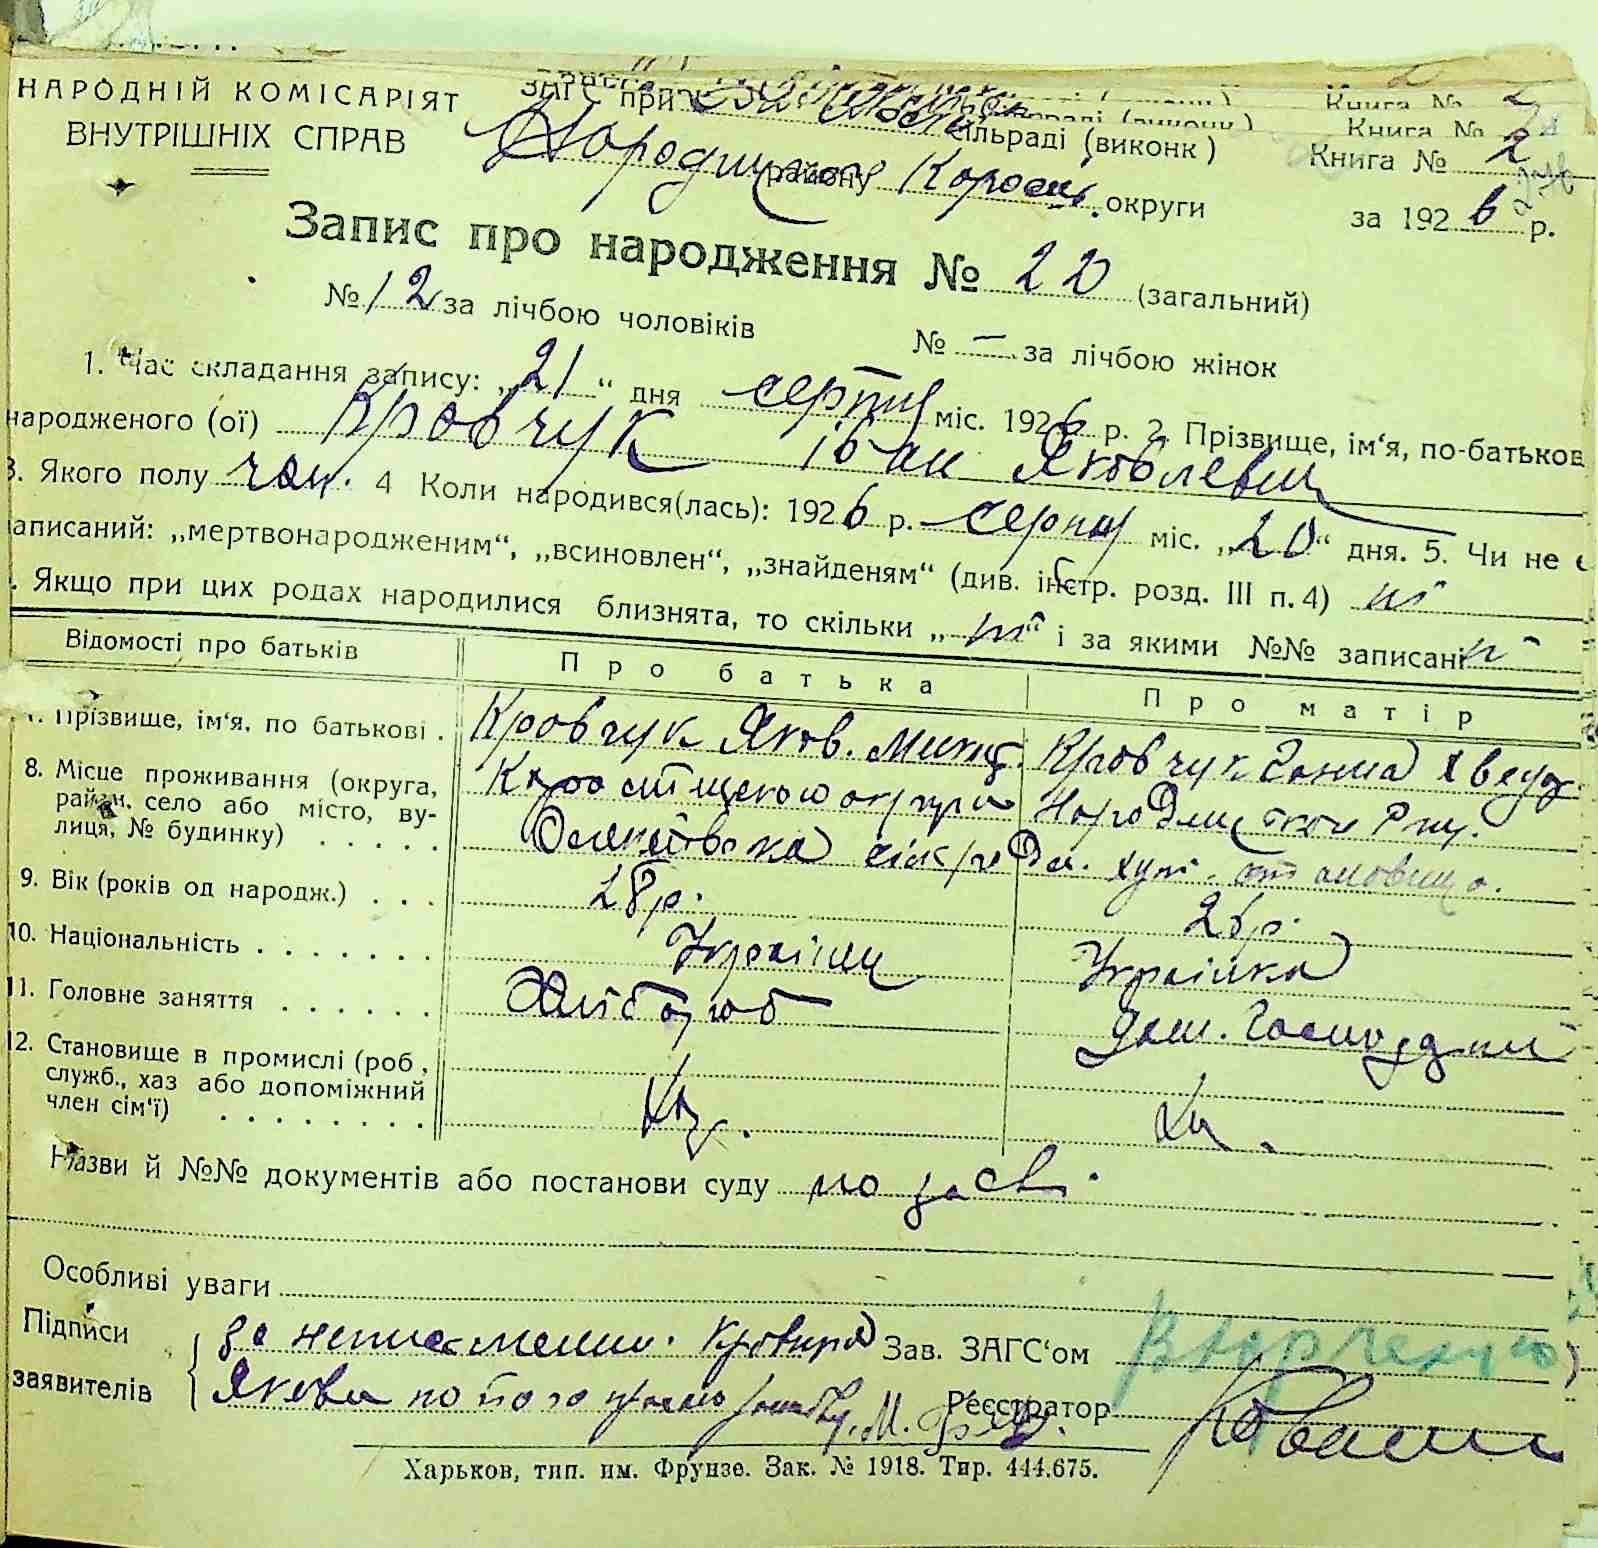 НАРОДНІЙ КОМІСАРІЯТ
ВНУТРІШНІХ СПРАВ
ЗАГС при сільраді (виконк)
Народицького району Корост. округи
Книга № 2
за 1926 р.
Запис про народження № 20 (загальний)
№ 12 за лічбою чоловіків № — за лічбою жінок
1. Час складання запису: „21“ дня серпня міс. 1926 р. 2. Прізвище, ім‘я, по-батькові
народженого (ої) Кровчук Іван Яковлевич
3. Якого полу чол. 4 Коли народився(лась): 1926 р. серпня міс. „20“ дня. 5. Чи не є
записаний: „мертвонародженим“, „всиновлен“, „знайденям“ (див. інстр. розд. III п. 4) ні
. Якщо при цих родах народилися близнята, то скільки „ні“ і за якими №№ записані ні
Відомості про батьків Про батька Про матір
7. Прізвище, ім‘я, по батькові . Кровчук Яков. Микит. Кровчук Ганна Хведор.
8. Місце проживання (округа, район, село або місто, вулиця, № будинку) . . . . . Коростенської округи Народицького р-ну.
сільради. хут.
9. Вік (років од народж.) . . . 28 р. 26 р.
10. Національність . . . . . . . Українец Українка
11. Головне заняття . . . . . . Хлібороб Дом. Господарка
12. Становище в промислі (роб., служб., хаз або допоміжний член сім‘ї) . . . . . . . . Хаз. Хаз.
Назви й №№ документів або постанови суду по засв.
Особливі уваги
Підписи заявителів { За неписменно. Кровчука
Якова по його прозьбі
Зав. ЗАГС‘ом
Реєстратор
Харьков, тип. им. Фрунзе. Зак. № 1918. Тир. 444.675.